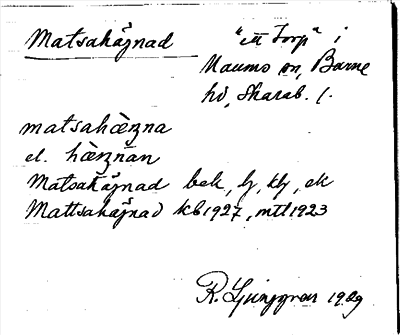 Matsahäjnad "ett Torp" i
Naumo sn, Barne
hd, Skarab. l.
matsahæ̀ʒna
el. hæ̀ʒnan
Matsahäjnad bek, lj, klj, ek
Mattsahäjnad kb1927, mtl1923
R. Ljunggren 1929